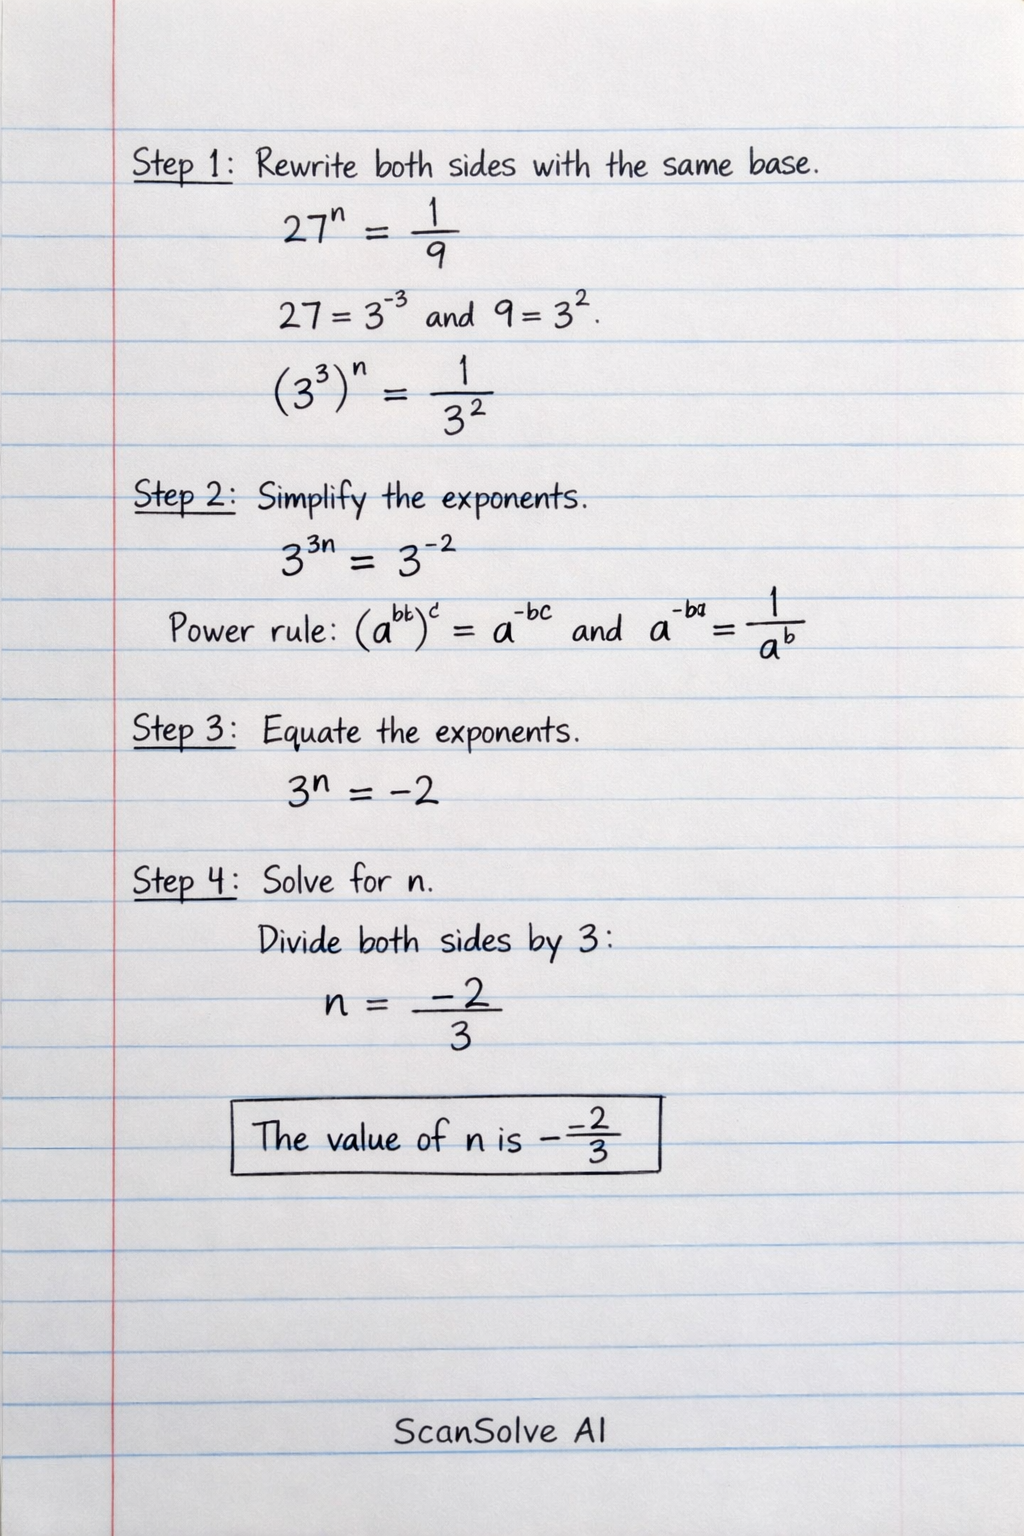 Step 1: Rewrite both sides with the same base.
27ⁿ = 1/9
27 = 3⁻³ and 9 = 3².
(3³)ⁿ = 1/3²
Step 2: Simplify the exponents.
3³ⁿ = 3⁻²
Power rule: (a^bt)^c = a^-bc and a^-ba = 1/a^b
Step 3: Equate the exponents.
3ⁿ = -2
Step 4: Solve for n.
Divide both sides by 3:
n = -2/3
The value of n is - -2/3
ScanSolve AI